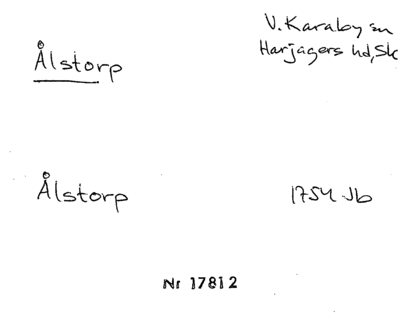 V. Karaby sn
Harjagers hd, Sk
Ålstorp
Ålstorp
1754 Jb
Nr 17812